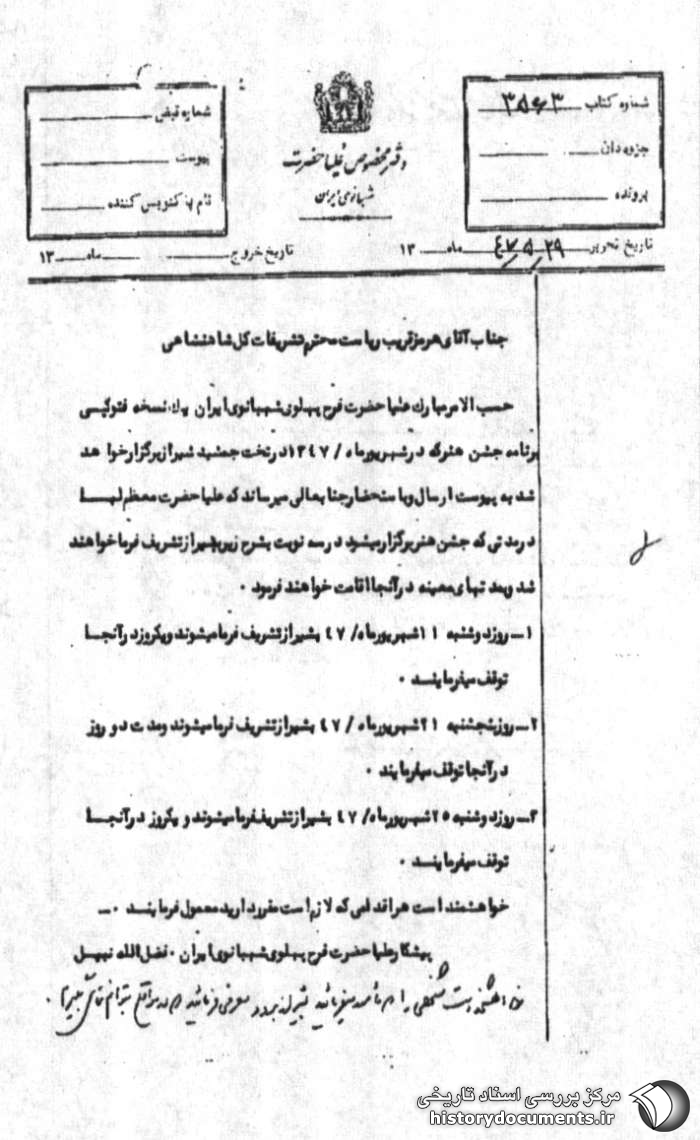 شماره کتاب ۳۵۶۳
جزوه‌دان
پرونده
تاریخ تحریر ۴۷/۵/۲۹ ماه ۱۳
دفتر مخصوص علیاحضرت
شهبانوی ایران
شماره قبض
پیوست
نام پاکنویس کننده
تاریخ خروج ماه ۱۳
جناب آقای هرمز قریب ریاست محترم تشریفات کل شاهنشاهی
حسب الامر مبارک علیاحضرت فرح پهلوی شهبانوی ایران یک نسخه فتوکپی
برنامه جشن هنر که در شهریور ماه / ۱۳۴۷ در تخت جمشید شیراز برگزار خواهد
شد به پیوست ارسال و باستحضار جنابعالی میرساند که علیاحضرت معظم لها
در مدتی که جشن هنر برگزار میشود در سه نوبت بشرح زیر بشیراز تشریف فرما خواهند
شد و بمدتهای معینه در آنجا اقامت خواهند فرمود ۰
۱ـ روز دوشنبه ۱۱ شهریور ماه / ۴۷ بشیراز تشریف فرما میشوند و یکروز در آنجا
توقف میفرمایند ۰
۲ـ روز پنجشنبه ۲۱ شهریور ماه / ۴۷ بشیراز تشریف فرما میشوند و مدت دو روز
در آنجا توقف میفرمایند ۰
۳ـ روز دوشنبه ۲۵ شهریور ماه / ۴۷ بشیراز تشریف فرما میشوند و یکروز در آنجا
توقف میفرمایند ۰
خواهشمند است هر اقدامی که لازم است مقرر دارید معمول فرمایند ۰ــ
پیشکار علیاحضرت فرح پهلوی شهبانوی ایران ۰ فضل الله نبیل
خواهشمند است شخصی را که مأمور میفرمائید بشیراز برود معرفی فرمائید که در مواقع بتوانم تماس بگیرم ۰
مرکز بررسی اسناد تاریخی
historydocuments.ir